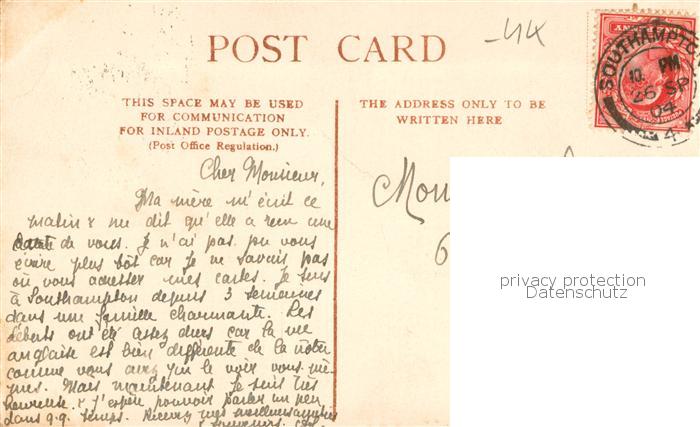 POST CARD
-44
SOUTHAMPTON
10. PM
26 SP
04
4
THIS SPACE MAY BE USED
FOR COMMUNICATION
FOR INLAND POSTAGE ONLY.
(Post Office Regulation.)
THE ADDRESS ONLY TO BE
WRITTEN HERE
Cher Monsieur,
Ma mère m'écrit ce
matin & me dit qu'elle a reçu une
carte de vous. Je n'ai pas pu vous
écrire plus tôt car je ne savais pas
où vous adresser mes cartes. Je suis
à Southampton depuis 3 semaines
dans une famille charmante. Les
débuts ont été assez durs car la vie
anglaise est bien différente de la nôtre
comme vous avez pu le voir vous mê-
mes. Mais maintenant je suis très
heureuse & j'espère pouvoir parler un peu
dans q.q. temps. Recevez mes meilleurs
souvenirs
Mon
6
privacy protection
Datenschutz